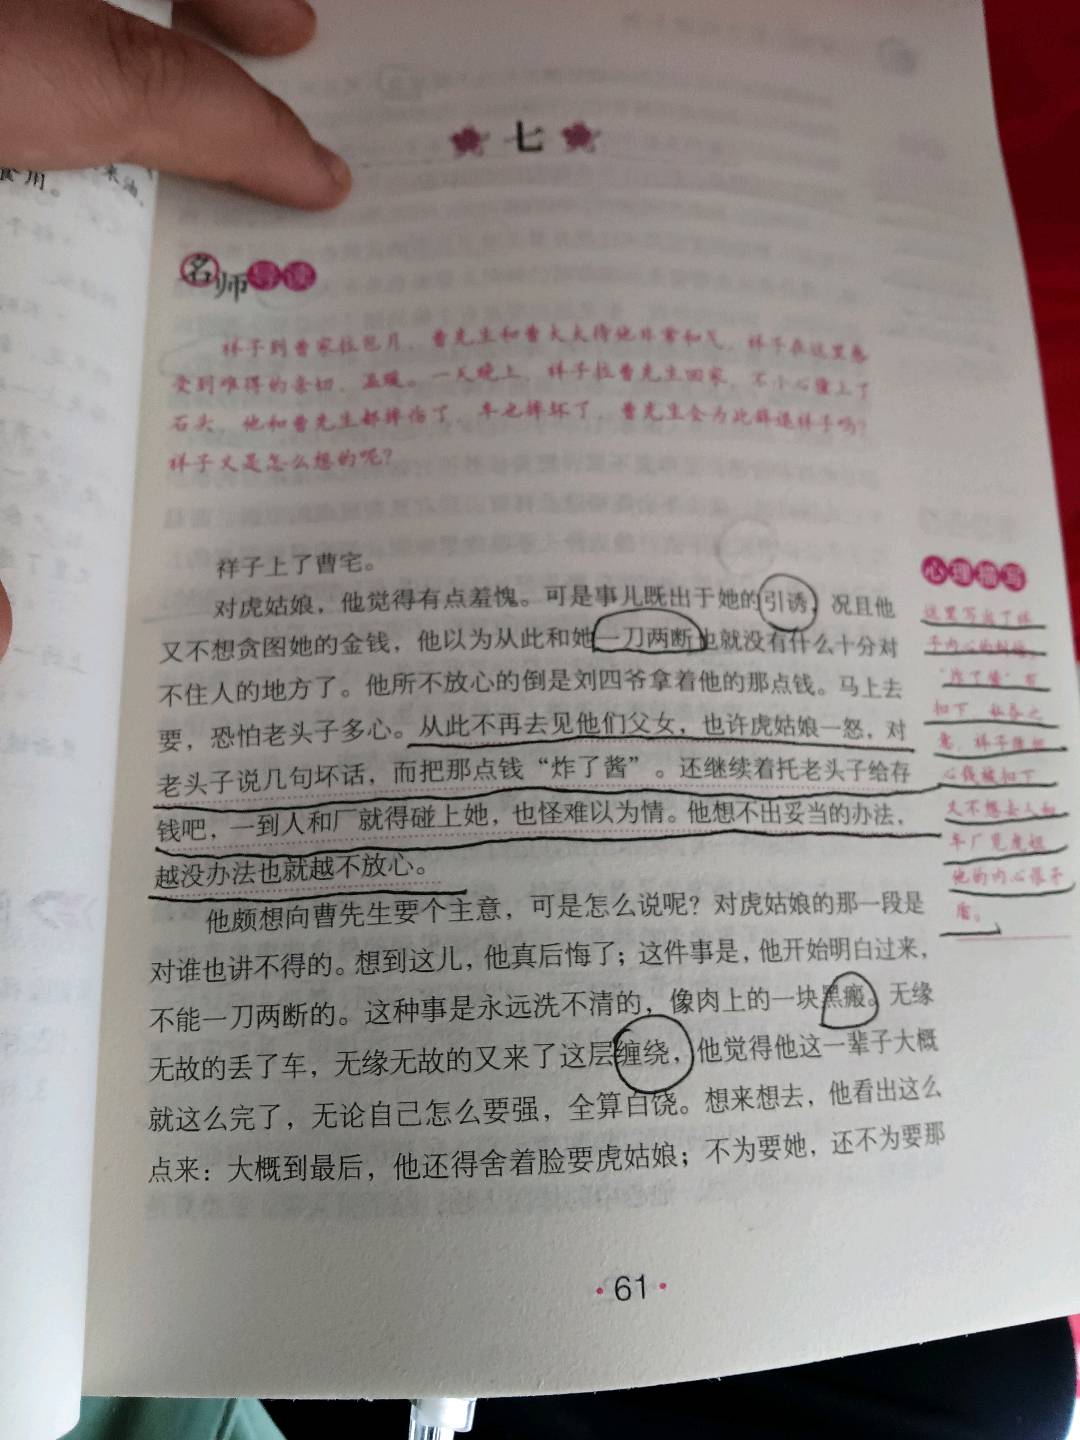 食用。
米油、
七
名师导读
祥子到曹家拉包月，曹先生和曹太太待他非常和气，祥子在这里感
受到难得的亲切、温暖。一天晚上，祥子拉曹先生回家，不小心撞上了
石头，他和曹先生都摔伤了，车也摔坏了，曹先生会为此辞退祥子吗？
祥子又是怎么想的呢？
祥子上了曹宅。
对虎姑娘，他觉得有点羞愧。可是事儿既出于她的引诱，况且他
又不想贪图她的金钱，他以为从此和她一刀两断也就没有什么十分对
不住人的地方了。他所不放心的倒是刘四爷拿着他的那点钱。马上去
要，恐怕老头子多心。从此不再去见他们父女，也许虎姑娘一怒，对
老头子说几句坏话，而把那点钱“炸了酱”。还继续着托老头子给存
钱吧，一到人和厂就得碰上她，也怪难以为情。他想不出妥当的办法，
越没办法也就越不放心。
他颇想向曹先生要个主意，可是怎么说呢？对虎姑娘的那一段是
对谁也讲不得的。想到这儿，他真后悔了；这件事是，他开始明白过来，
不能一刀两断的。这种事是永远洗不清的，像肉上的一块黑瘢。无缘
无故的丢了车，无缘无故的又来了这层缠绕，他觉得他这一辈子大概
就这么完了，无论自己怎么要强，全算白饶。想来想去，他看出这么
点来：大概到最后，他还得舍着脸要虎姑娘；不为要她，还不为要那
心理描写
这里写出了祥
子内心的
“炸了酱”有
扣下、私吞之
意，祥子
心钱被扣下
又不想去人和
车厂见虎妞
他的内心很矛
盾。
61